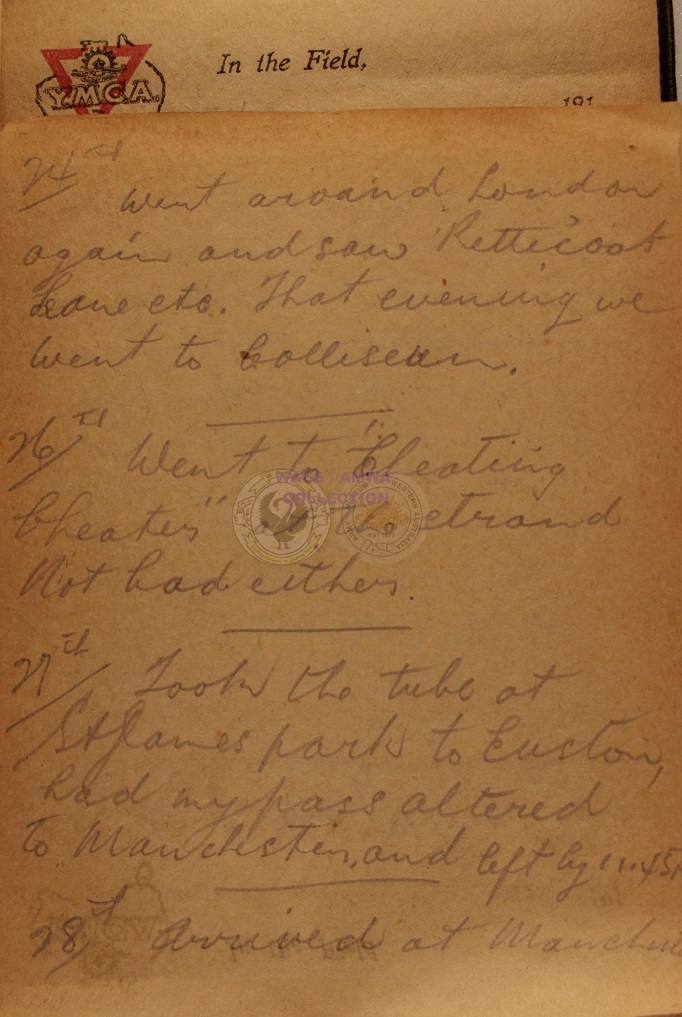 YMCA
In the Field,
191
Went around London
again and saw Petticoat
Lane etc. That evening we
went to Colliseum.
26/th Went to "Cheating
WAGS AMWA
COLLECTION
Cheaters" at the strand
Not bad either.
27th/ Took the tube at
St James park to Euston,
had my pass altered
to Manchester, and left by 11.45,
28th/ Arrived at Manche